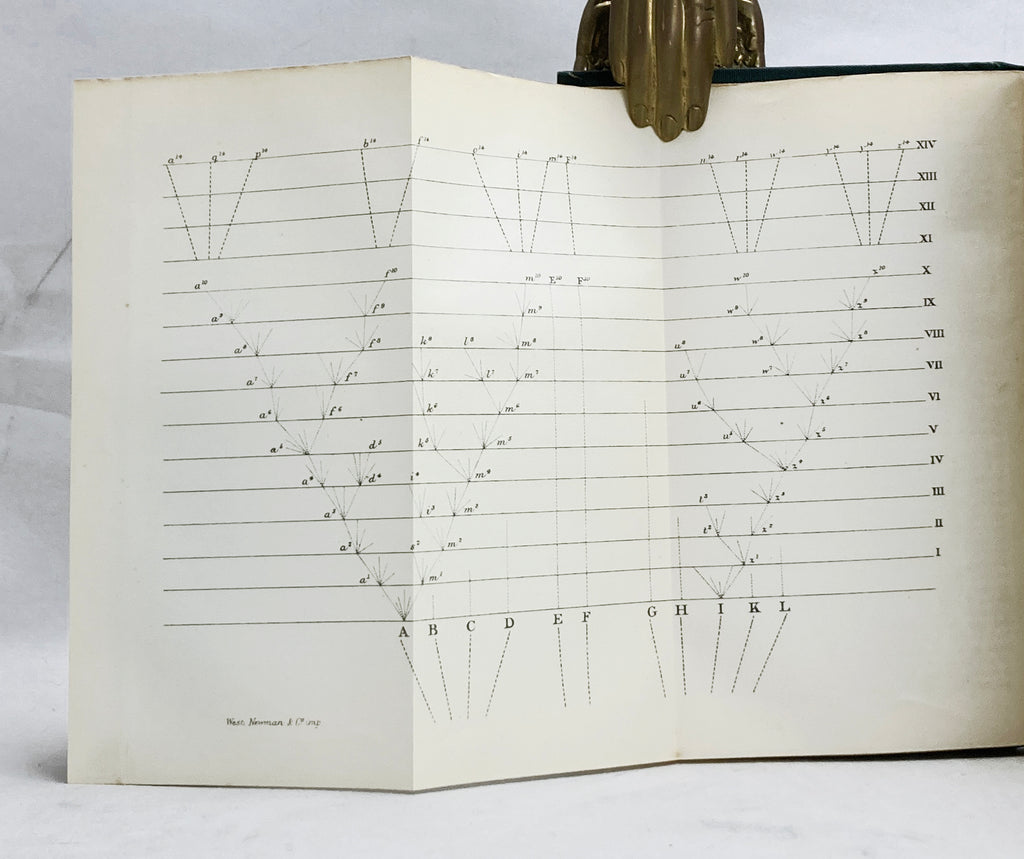 a¹⁴ q¹⁴ p¹⁴ b¹⁴ f¹⁴ o¹⁴ i¹⁴ m¹⁴ F¹⁴ n¹⁴ r¹⁴ w¹⁴ y¹⁴ v¹⁴ z¹⁴ XIV
XIII
XII
XI
a¹⁰ f¹⁰ m¹⁰ E¹⁰ F¹⁰ w¹⁰ z¹⁰ X
a⁹ f⁹ m⁹ w⁹ z⁹ IX
a⁸ f⁸ k⁸ l⁸ m⁸ u⁸ w⁸ z⁸ VIII
a⁷ f⁷ k⁷ l⁷ m⁷ u⁷ w⁷ z⁷ VII
a⁶ f⁶ k⁶ m⁶ u⁶ z⁶ VI
a⁵ d⁵ k⁵ m⁵ u⁵ z⁵ V
a⁴ d⁴ i⁴ m⁴ z⁴ IV
a³ i³ m³ t³ z³ III
a² s² m² t² z² II
a¹ m¹ z¹ I
A B C D E F G H I K L
West, Newman & Cº imp.